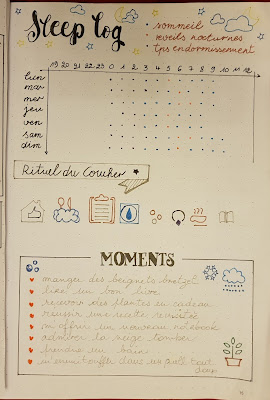 Sleep log
• sommeil
• reveils nocturnes
• tps endormissement
19 20 21 22 23 0 1 2 3 4 5 6 7 8 9 10 11 12
lun
mar
mer
jeu
ven
sam
dim
Rituel du Coucher
MOMENTS
manger des beignets bretzel
lire un bon livre
recevoir des plantes en cadeau
réussir une recette
m'offrir un nouveau notebook
admirer la neige tomber
prendre un bain
dans un pull tout
doux